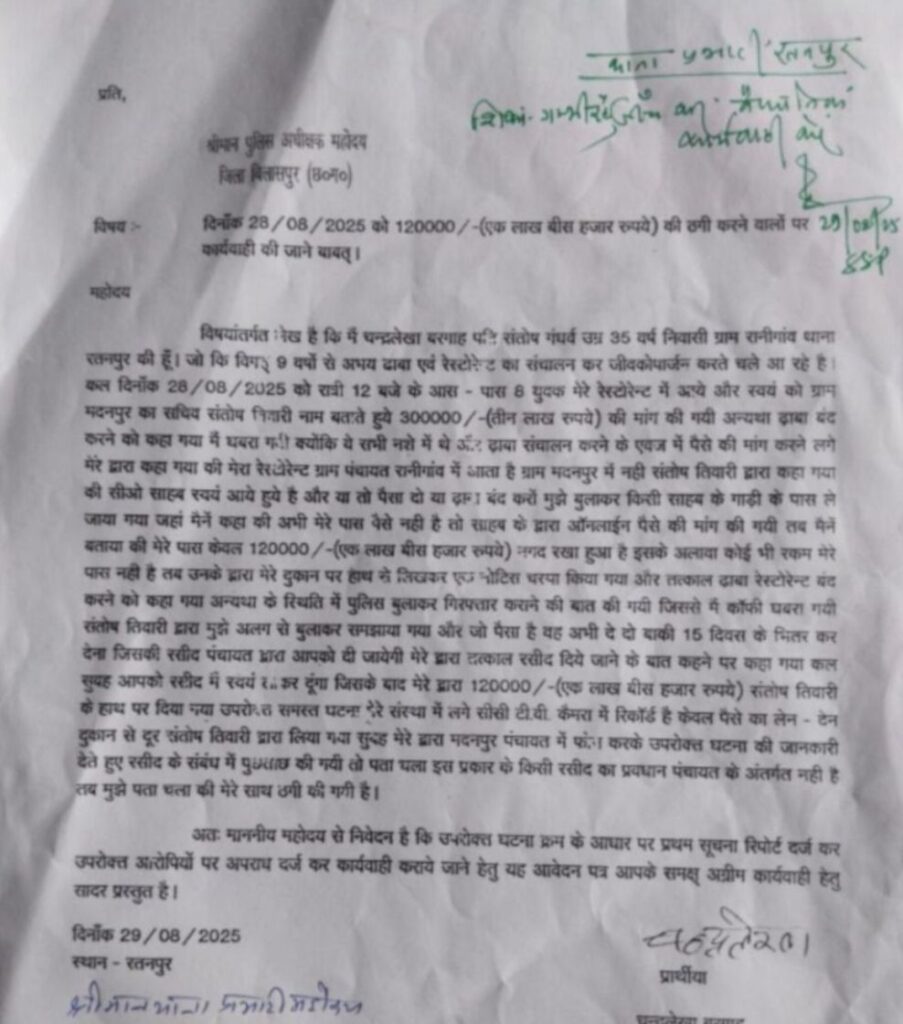 थाना प्रभारी रतनपुर
शिकायत गम्भीर है जाँच कर वैधानिक
कार्यवाही करें
29/08/25
SSP
प्रति,
श्रीमान पुलिस अधीक्षक महोदय
जिला बिलासपुर (छ०ग०)
विषय :- दिनाँक 28/08/2025 को 120000/-(एक लाख बीस हजार रुपये) की ठगी करने वालों पर
कार्यवाही की जाने बाबत्।
महोदय
विषयांतर्गत लेख है कि मैं चन्द्रलेखा बरगाह पति संतोष गंधर्व उम्र 35 वर्ष निवासी ग्राम रानीगांव थाना
रतनपुर की हूँ। जो कि विगत् 9 वर्षो से अभय ढाबा एवं रेस्टोरेन्ट का संचालन कर जीवकोपार्जन करते चले आ रहे है।
कल दिनाँक 28/08/2025 को रात्री 12 बजे के आस - पास 8 युवक मेरे रेस्टोरेन्ट में आये और स्वयं को ग्राम
मदनपुर का सचिव संतोष तिवारी नाम बताते हुये 300000/-(तीन लाख रुपये) की मांग की गयी अन्यथा ढ़ाबा बंद
करने को कहा गया मैं घबरा गयी क्योंकि ये सभी नशे में थे और ढ़ाबा संचालन करने के एवज में पैसे की मांग करने लगे
मेरे द्वारा कहा गया की मेरा रेस्टोरेन्ट ग्राम पंचायत रानीगांव में आता है ग्राम मदनपुर में नही संतोष तिवारी द्वारा कहा गया
की सीओ साहब स्वयं आये हुये है और या तो पैसा दो या ढ़ाबा बंद करों मुझे बुलाकर किसी साहब के गाड़ी के पास ले
जाया गया जहां मैनें कहा की अभी मेरे पास पैसे नही है तो साहब के द्वारा ऑनलाईन पैसे की मांग की गयी तब मैनें
बताया की मेरे पास केवल 120000/-(एक लाख बीस हजार रुपये) नगद रखा हुआ है इसके अलावा कोई भी रकम मेरे
पास नही है तब उनके द्वारा मेरे दुकान पर हाथ से लिखकर एक नोटिस चस्पा किया गया और तत्काल ढाबा रेस्टोरेन्ट बंद
करने को कहा गया अन्यथा के स्थिति में पुलिस बुलाकर गिरफ्तार कराने की बात की गयी जिससे मै कॉफी घबरा गयी
संतोष तिवारी द्वारा मुझे अलग से बुलाकर समझाया गया और जो पैसा है वह अभी दे दो बाकी 15 दिवस के भितर कर
देना जिसकी रसीद पंचायत द्वारा आपको दी जायेगी मेरे द्वारा तत्काल रसीद दिये जाने के बात कहने पर कहा गया कल
सुबह आपको रसीद मैं स्वयं लाकर दूंगा जिसके बाद मेरे द्वारा 120000/-(एक लाख बीस हजार रुपये) संतोष तिवारी
के हाथ पर दिया गया उपरोक्त समस्त घटना मेरे संस्था में लगे सीसी टी.वी. कैमरा में रिकॉर्ड है केवल पैसे का लेन - देन
दुकान से दूर संतोष तिवारी द्वारा लिया गया सुबह मेरे द्वारा मदनपुर पंचायत में फोन करके उपरोक्त घटना की जानकारी
देते हुए रसीद के संबंध में पुछताछ की गयी तो पता चला इस प्रकार के किसी रसीद का प्रवधान पंचायत के अंतर्गत नही है
तब मुझे पता चला की मेरे साथ ठगी की गगी है।
अतः माननीय महोदय से निवेदन है कि उपरोक्त घटना क्रम के आधार पर प्रथम सूचना रिपोर्ट दर्ज कर
उपरोक्त आरोपियों पर अपराध दर्ज कर कार्यवाही कराये जाने हेतु यह आवेदन पत्र आपके समक्ष् अग्रीम कार्यवाही हेतु
सादर प्रस्तुत है।
दिनाँक 29/08/2025
स्थान - रतनपुर
चन्द्रलेखा
प्रार्थीया
चन्द्रलेखा बरगाह
श्रीमान थाना प्रभारी महोदय